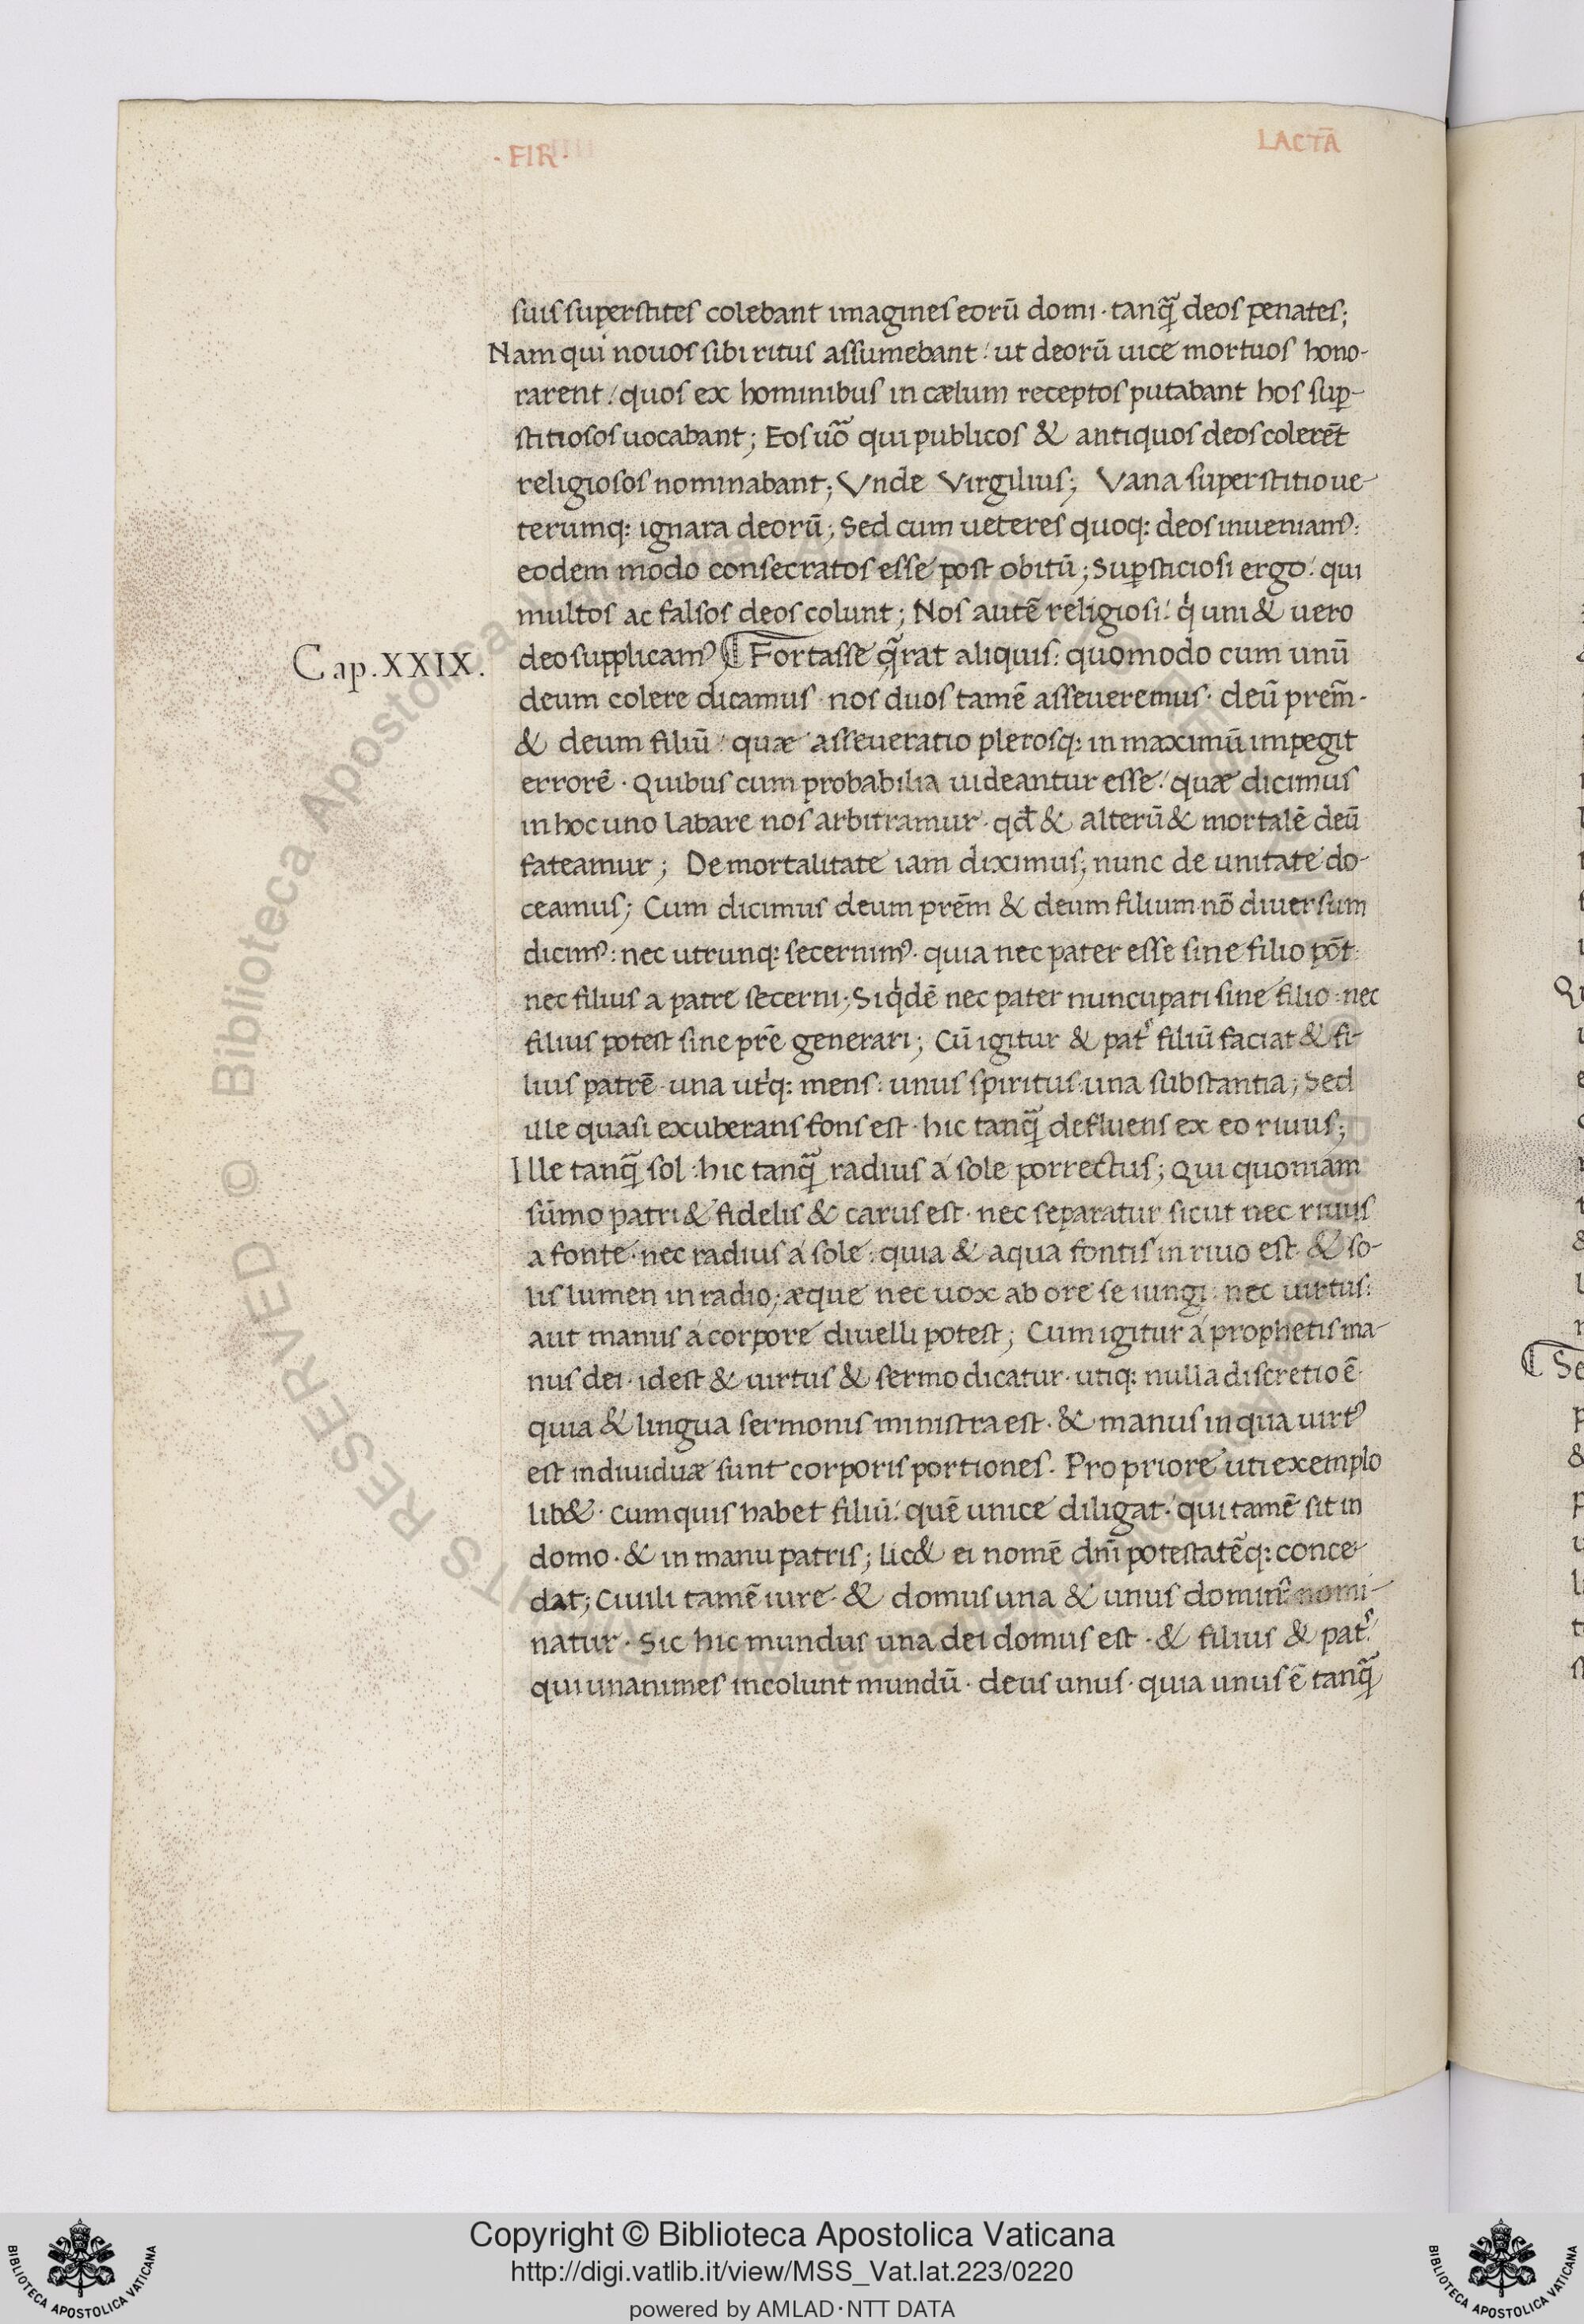 · FIR · IIII
LACTA̅
suis superstites colebant imagines eorū domi · tanq̃ deos penates;
Nam qui nouos sibi ritus assumebant / ut deorū uice mortuos hono-
rarent / quos ex hominibus in cælum receptos putabant hos sup̱-
stitiosos uocabant; Eos uõ qui publicos & antiquos deos colerēt
religiosos nominabant; Vnde Virgilius; Vana superstitio ue-
terumq: ignara deorū; Sed cum ueteres quoq: deos inueniamꝰ:
eodem modo consecratos esse post obitū; Sup̱sticiosi ergo / qui
multos ac falsos deos colunt; Nos autē religiosi / qͥ uni & uero
Cap. XXIX.
deo supplicamꝰ ¶ Fortasse q̃rat aliquis: quomodo cum unū
deum colere dicamus · nos duos tamē asseueremus · deū prem̄ ·
& deum filiū / quæ asseueratio plerosq: in maximū impegit
errorē · Quibus cum probabilia uideantur esse / quæ dicimus
in hoc uno labare nos arbitramur · qđ & alterū & mortalē deū
fateamur; De mortalitate iam diximus; nunc de unitate do-
ceamus; Cum dicimus deum prēm & deum filium · nō diuersum
dicimꝰ: nec utrunq: secernimꝰ · quia nec pater esse sine filio pōt:
nec filius a patre secerni; Siqͥdē nec pater nuncupari sine filio: nec
filius potest sine prē generari; Cū igitur & patˢ filiū faciat & fi-
lius patrē · una utͥq: mens: unus spiritus · una substantia; Sed
ille quasi exuberans fons est · hic tanq̃ defluens ex eo riuus;
Ille tanq̃ sol · hic tanq̃ radius a sole porrectus; Qui quoniam
sūmo patri & fidelis & carus est · nec separatur sicut nec riuus
a fonte · nec radius a sole: quia & aqua fontis in riuo est · & so-
lis lumen in radio; æque nec uox ab ore se iungi · nec uirtus:
aut manus a corpore diuelli potest; Cum igitur a prophetis ma-
nus dei · idest & uirtus & sermo dicatur · utiq: nulla discretio ē ·
quia & lingua sermonis ministra est · & manus in qua uirtꝰ
est indiuiduæ sunt corporis portiones · Propriore uti exemplo
lib& · cum quis habet filiū / quē unice diligat · qui tamē sit in
domo · & in manu patris; lic& ei nomē dn̄i potestatēq: conce-
dat; Ciuili tamē iure · & domus una & unus dominꝰ nomi-
natur · Sic hic mundus una dei domus est · & filius & patˢ /
qui unanimes incolunt mundū · deus unus · quia unus ē tanq̃
Copyright © Biblioteca Apostolica Vaticana
http://digi.vatlib.it/view/MSS_Vat.lat.223/0220
powered by AMLAD·NTT DATA